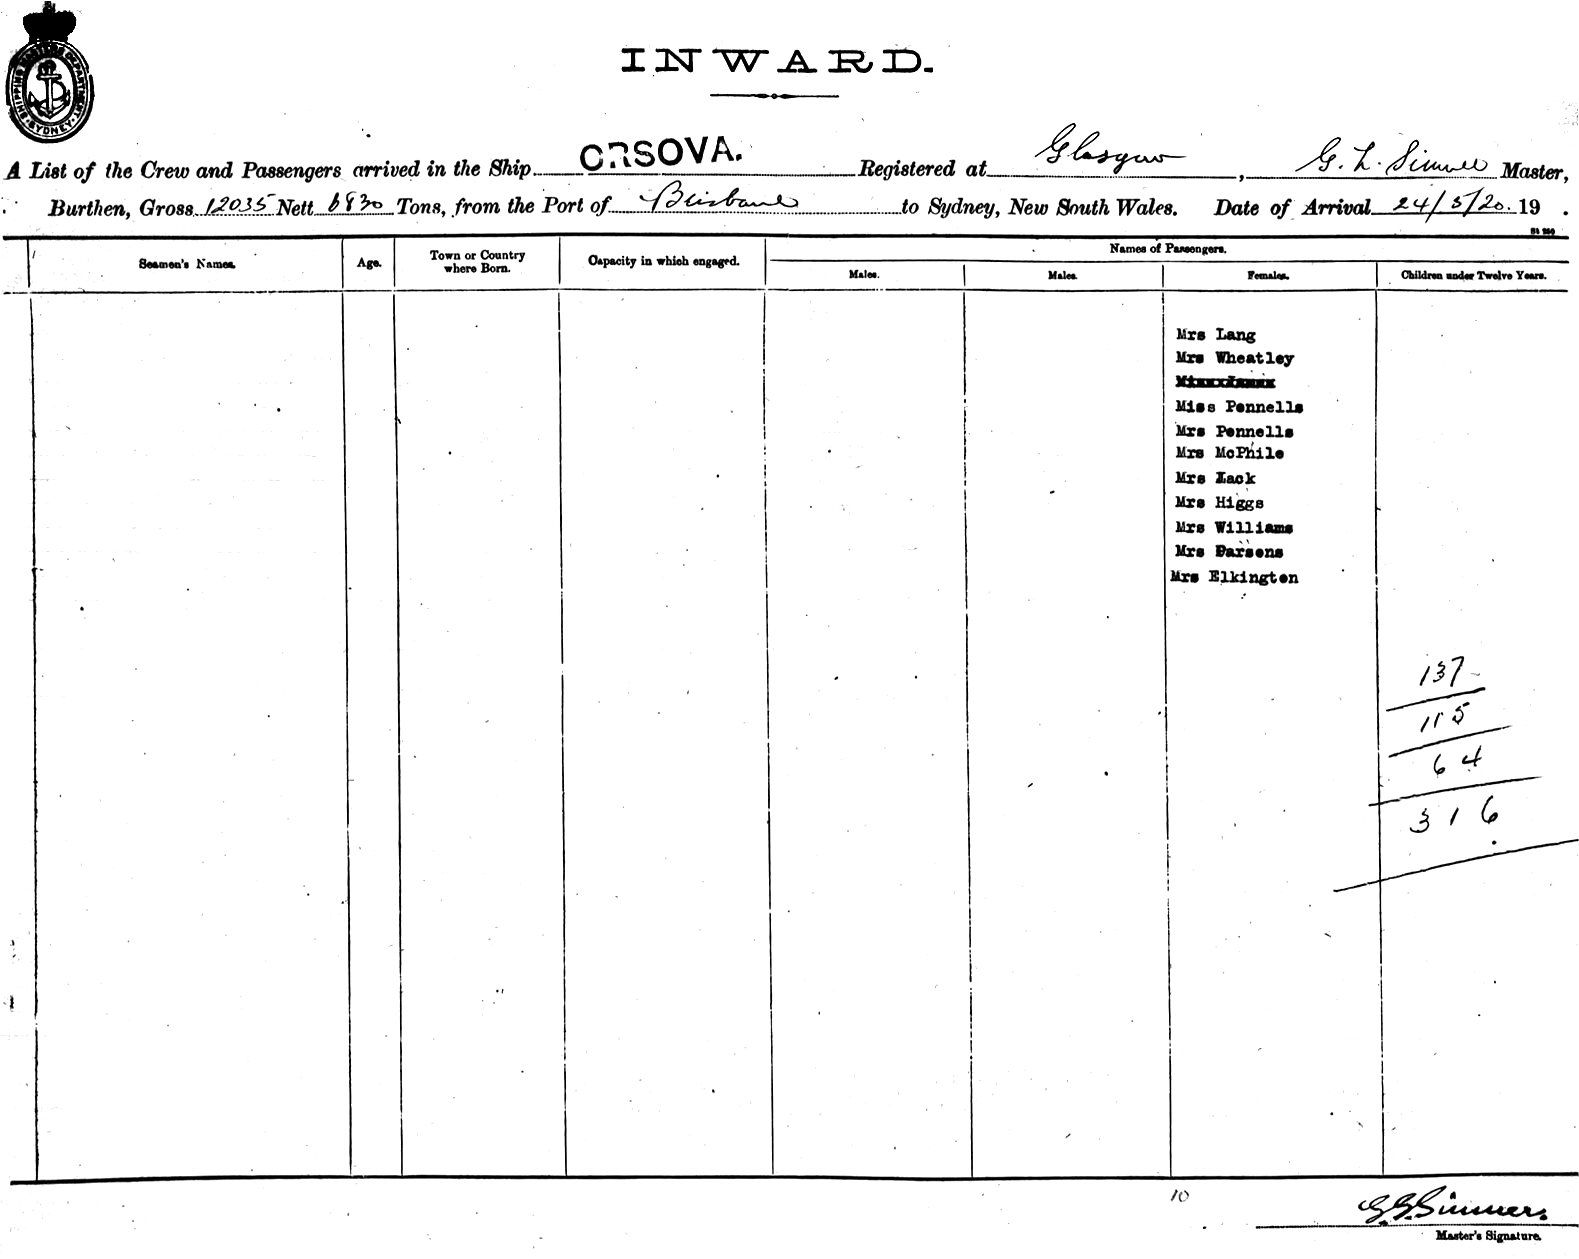 SHIPPING MASTERS DEPARTMENT
SYDNEY
INWARD.
A List of the Crew and Passengers arrived in the Ship ORSOVA. Registered at Glasgow, G. L. Master,
Burthen, Gross 12035 Nett 6830 Tons, from the Port of Brisbane to Sydney, New South Wales. Date of Arrival 24/5/20. 19 .
Seamen's Names. Age. Town or Country where Born. Capacity in which engaged. Names of Passengers.
Males. Males. Females. Children under Twelve Years.
Mrs Lang
Mrs Wheatley
Miss Pennells
Mrs Pennells
Mrs McPhile
Mrs Lack
Mrs Higgs
Mrs Williams
Mrs Parsons
Mrs Elkington
137
115
64
316
10
Master's Signature.